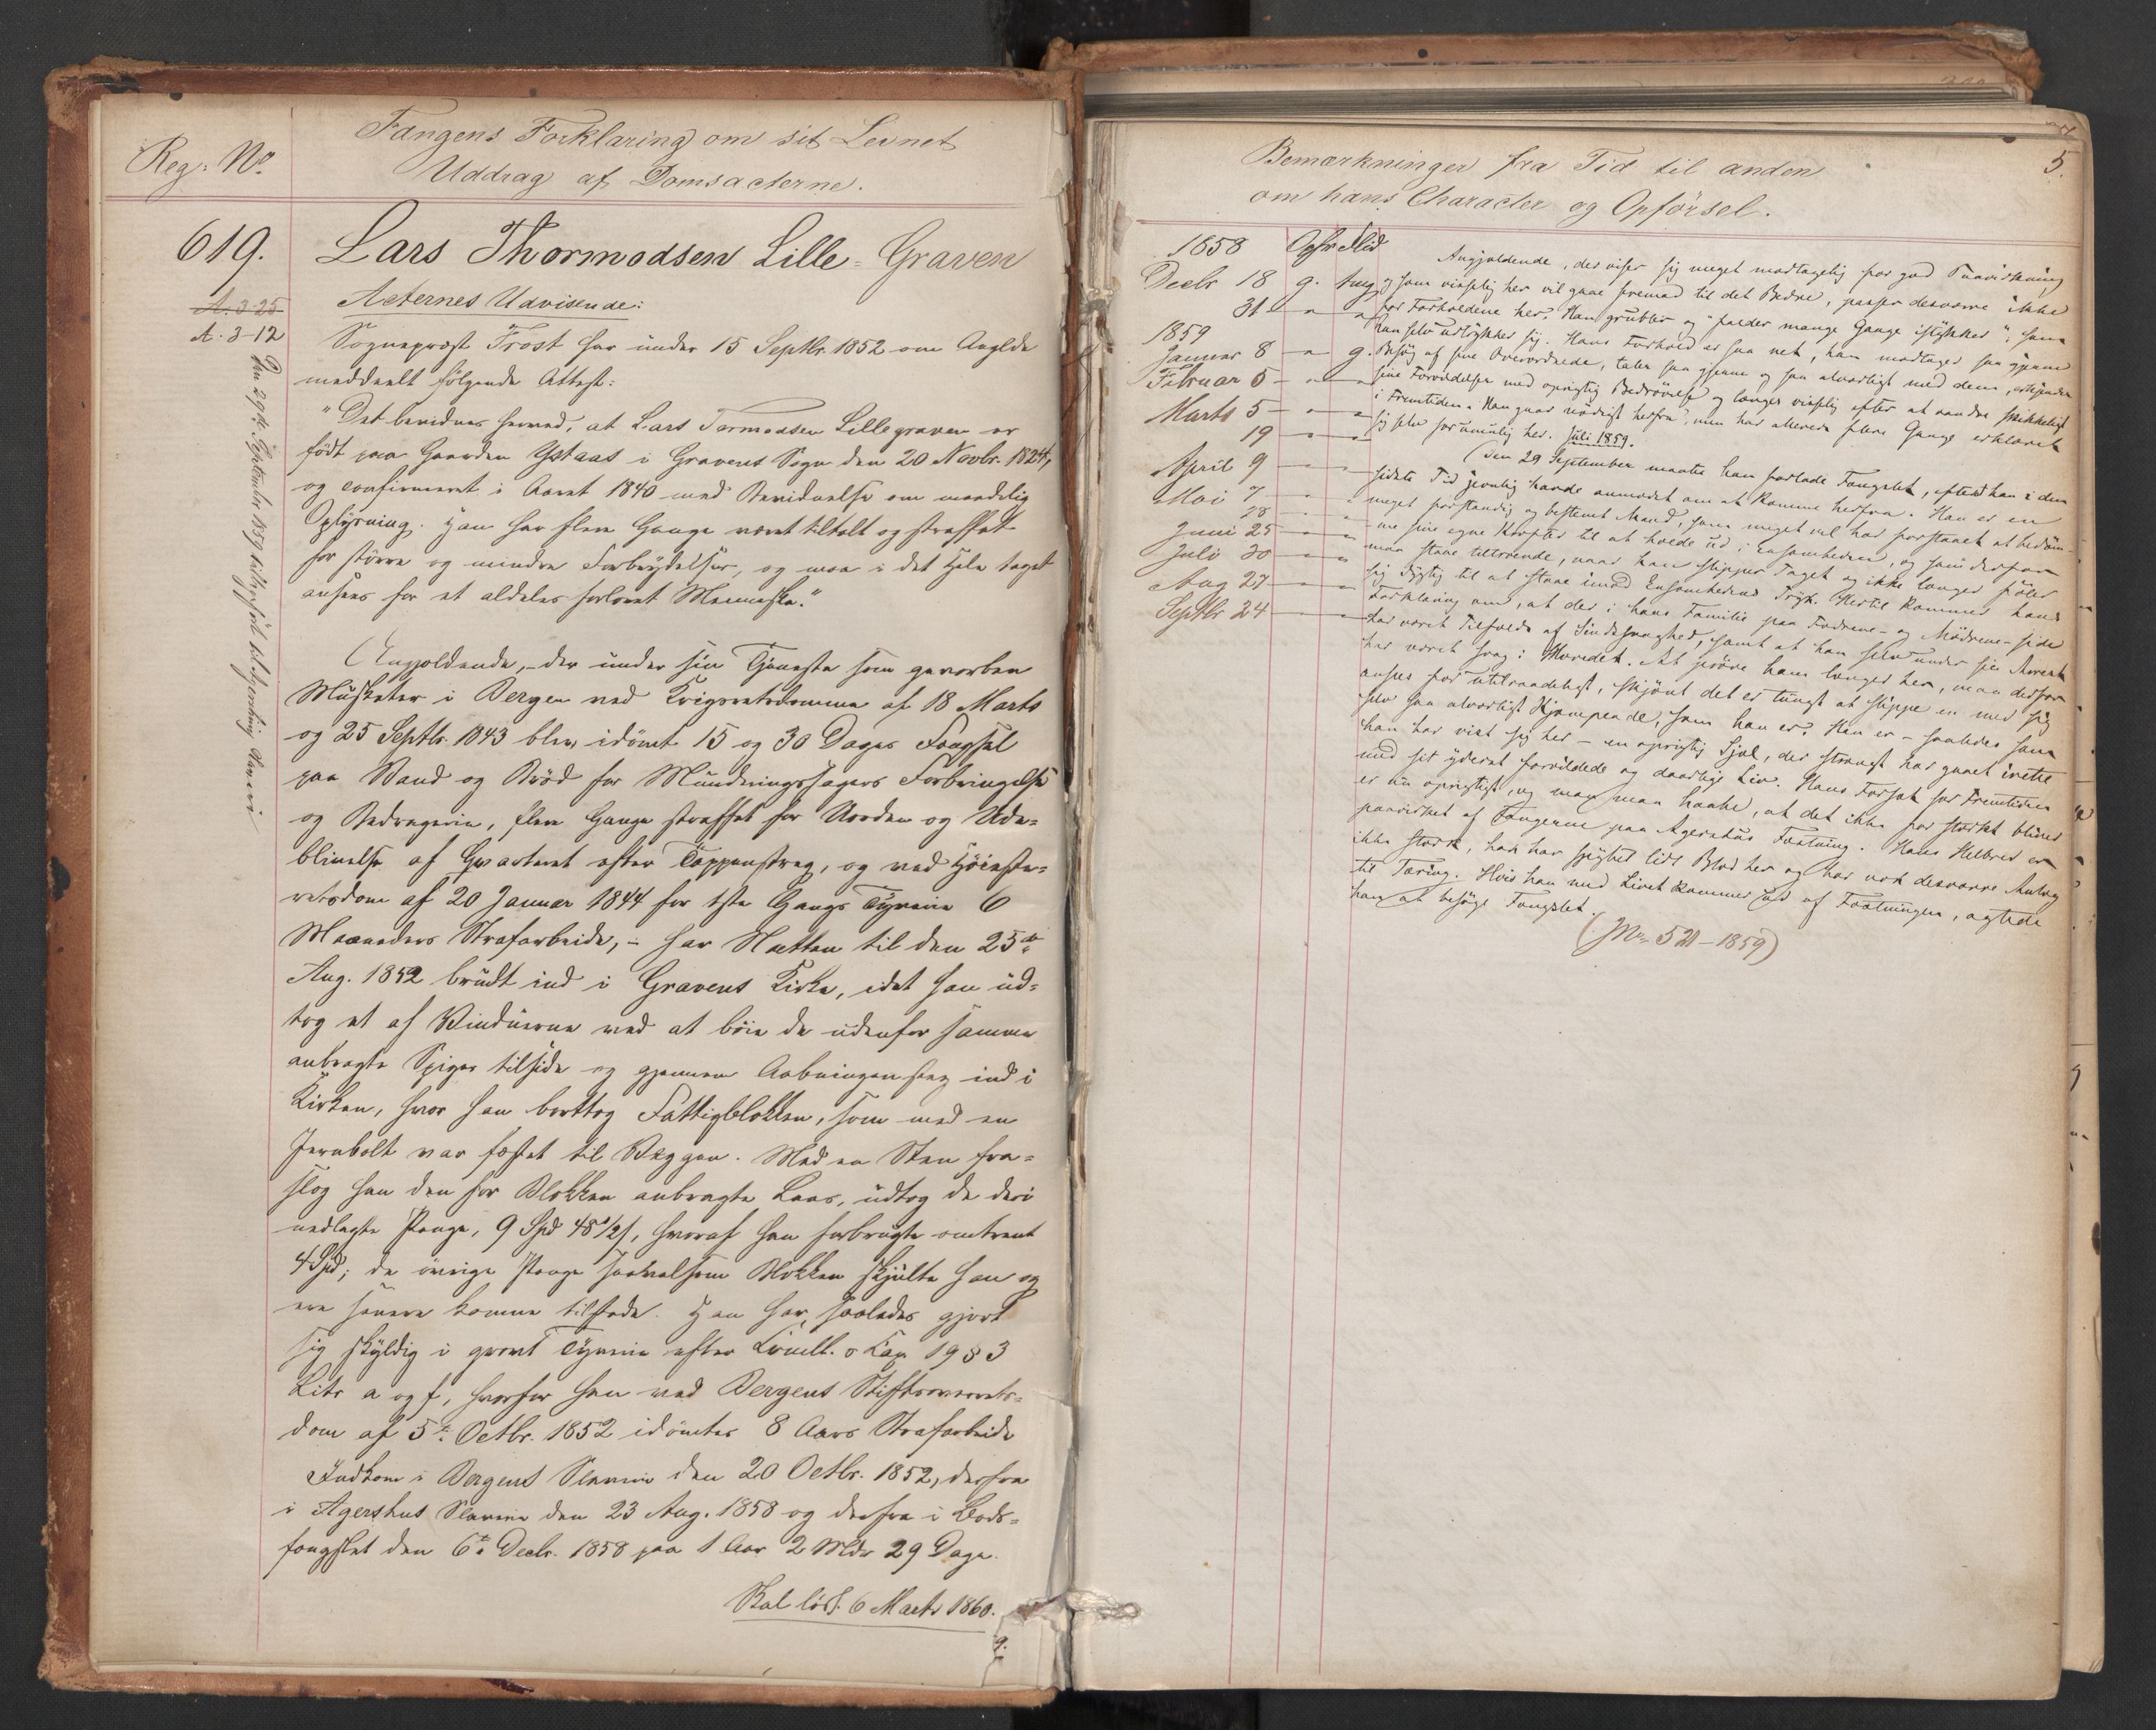 Reg: No.
Fangens Forklaring om sit Levnet
Uddrag af Domsacterne.
619.
Lars Thormodsen Lille-Graven
A. 3-25
A. 3-12
Den 29de September 1859 tilbageført til Agershus Slaveri
Acternes Udvisende:
Sognepræst Frost har under 15 Septbr. 1852 om Angldе
meddeelt følgende Attest:
"Det bevidnes herved, at Lars Tormodsen Lillegraven er
født paa Gaarden Ystaas i Gravens Sogn den 20 Novbr. 1824,
og confirmeret i Aaret 1840 med Bevidnelse om maadelig
Oplysning. Han har flere Gange været tiltalt og straffet
for større og mindre Forbrydelser, og maa i det Hele taget
ansees for et aldeles forloret Menneske."
Angjældende, - der under sin Tjeneste som gevorben
Musketer i Bergen ved Krigsretsdomme af 18 Marts
og 25 Septbr. 1843 blev idømt 15 og 30 Dages Fængsel
paa Vand og Brød for Munderingssagers Forbringelse
og Bedragerie, flere Gange straffet for Uorden og Ude-
blivelse af Qvarteret efter Tappenstreg, og ved Høieste-
retsdom af 20 Januar 1844 for 1ste Gangs Tyverie 6
Maaneders Strafarbeide, - har Natten til den 25de
Aug. 1852 brudt ind i Gravens Kirke, idet han ud-
tog et af Vinduerne ved at bøie de udenfor samme
anbragte Spiger tilside og gjennem Aabningen steg ind i
Kirken, hvor han borttog Fattigblokken, som med en
Jernbolt var fæstet til Væggen. Med en Sten fra-
slog han den for Blokken anbragte Laas, udtog de deri
nedlagte Penge, 9 Spd 48 1/2 s, hvoraf han forbrugte omtrent
4 Spd; de øvrige Penge saavelsom Blokken skjulte han og
ere senere komne tilstede. Han har saaledes gjort
sig skyldig i grovt Tyverie efter Criml. Kap 19 § 3
Litr a og f, hvorfor han ved Bergens Stiftsoverrets-
dom af 5te Octbr. 1852 idømtes 8 Aars Strafarbeide
Indkom i Bergens Slaverie den 20 Octbr. 1852, derfra
i Agershus Slaverie den 23 Aug. 1858 og derfra i Bods-
fængslet den 6te Decbr. 1858 paa 1 Aar 2 Mdr 29 Dage.
Skal løsl. 6 Marts 1860.
9.
5.
Bemærkninger fra Tid til anden
om hans Character og Opførsel.
1858 Opfr Flid
Decbr 18 g. mg
31 - " "
1859
Januar 8 - " g.
Februar 5 - " -
Marts 5 - " -
19 - " -
April 9 - -
Mai 7 - "
28 " "
Juni 25 - "
Juli 30 - "
Aug 27 - -
Septbr 24 - -
Angjældende, der viser sig meget modtagelig for god Paavirkning
og som virkelig her vil gaae fremad til det Bedre, passer desværre ikke
for Forholdene her. Han grubler og "falder mange Gange istykker", som
han selv udtrykker sig. Hans Forhold er saa net, han modtager saa gjerne
Besøg af sine Overordnede, taler saa gjerne og saa alvorligt med dem, erkjender
sine Forvildelser med oprigtig Bedrøvelse og længes virkelig efter at vandre skikkeligt
i Fremtiden. Han gaar nødigt herfra, men har allerede flere Gange erklæret
sig selv for umulig her. Juli 1859.
Den 29 September maatte han forlade Fængslet, efterat han i den
sidste Tid jevnlig havde anmodet om at komme herfra. Han er en
meget forstandig og bestemt Mand, som meget vel har forstaaet at bedøm-
me sine egne Kræfter til at holde ud i Ensomheden, og som derfor
maa staae tiltroende, naar han slipper Taget og ikke længer føler
sig dygtig til at staae imod Ensomhedens Tryk. Hertil kommer hans
Forklaring om, at der i hans Familie paa Fædrene- og Mødrene-side
har været Tilfælde af Sindssvaghed, samt at han selv under sin Arrest
har været svag i Hovedet. At prøve ham længer her, maa derfor
ansees for utilraadeligt, skjønt det er tungt at slippe en med sig
selv saa alvorligt Kjæmpende, som han er. Han er - saaledes som
han har vist sig her - en oprigtig Sjæl, der strengt har gaaet irette
med sit yderst forvildede og daarlige Liv. Hans Forsæt for Fremtiden
er nu oprigtigt, og maa man haabe, at det ikke for stærkt bliver
paavirket af Fangerne paa Agershus Fæstning. Hans Helbred er
ikke stærk, han har spyttet lidt Blod her og har nok desværre Anlæg
til Tæring. Hvis han med Livet kommer ud af Fæstningen, agtede
han at besøge Fængslet.
(No 521 - 1859)